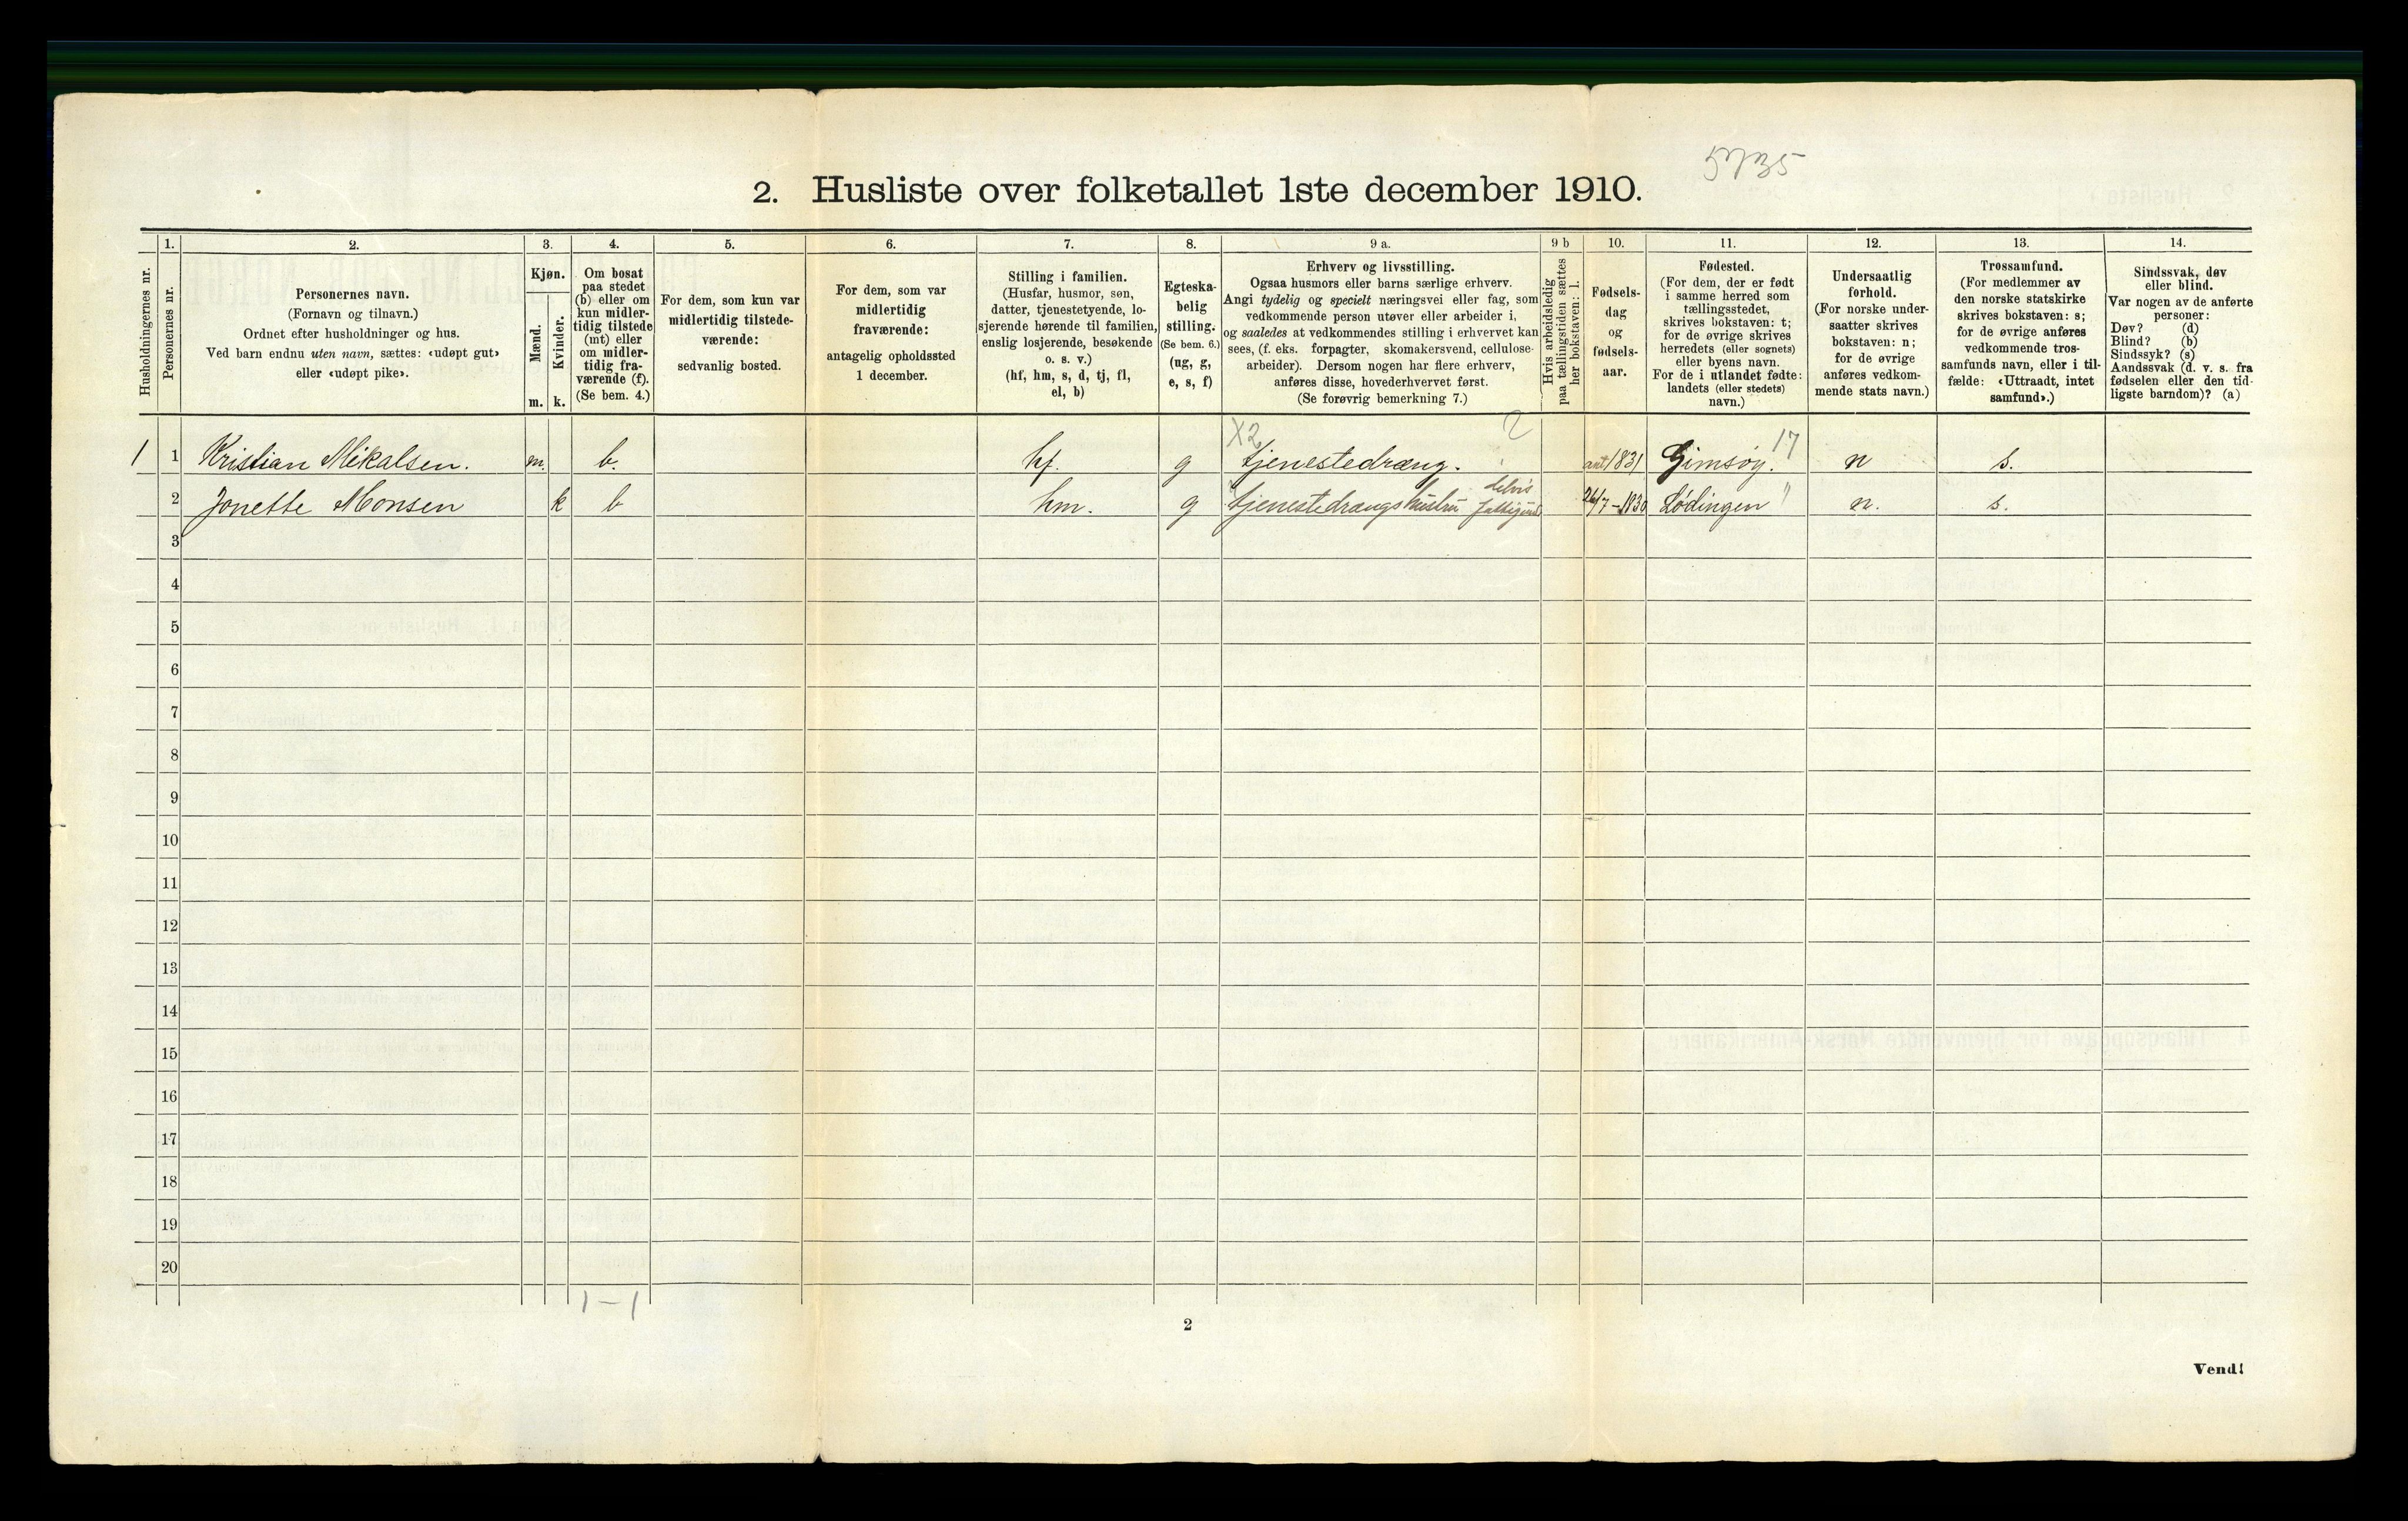 5735
2. Husliste over folketallet 1ste december 1910.
Husholdningernes nr.
1.
Personernes nr.
2.
Personernes navn.
(Fornavn og tilnavn.)
Ordnet efter husholdninger og hus.
Ved barn endnu uten navn, sættes: «udøpt gut»
eller «udøpt pike».
3.
Kjøn.
Mænd.
Kvinder.
m. k.
4.
Om bosat
paa stedet
(b) eller om
kun midler-
tidig tilstede
(mt) eller
om midler-
tidig fra-
værende (f).
(Se bem. 4.)
5.
For dem, som kun var
midlertidig tilstede-
værende:
sedvanlig bosted.
6.
For dem, som var
midlertidig
fraværende:
antagelig opholdssted
1 december.
7.
Stilling i familien.
(Husfar, husmor, søn,
datter, tjenestetyende, lo-
sjerende hørende til familien,
enslig losjerende, besøkende
o. s. v.)
(hf, hm, s, d, tj, fl,
el, b)
8.
Egteska-
belig
stilling.
(Se bem. 6.)
(ug, g,
e, s, f)
9 a.
Erhverv og livsstilling.
Ogsaa husmors eller barns særlige erhverv.
Angi tydelig og specielt næringsvei eller fag, som
vedkommende person utøver eller arbeider i,
og saaledes at vedkommendes stilling i erhvervet kan
sees, (f. eks. forpagter, skomakersvend, cellulose-
arbeider). Dersom nogen har flere erhverv,
anføres disse, hovederhvervet først.
(Se forøvrig bemerkning 7.)
9 b
Hvis arbeidsledig
paa tællingstiden sættes
her bokstaven: l.
10.
Fødsels-
dag
og
fødsels-
aar.
11.
Fødested.
(For dem, der er født
i samme herred som
tællingsstedet,
skrives bokstaven: t;
for de øvrige skrives
herredets (eller sognets)
eller byens navn.
For de i utlandet fødte:
landets (eller stedets)
navn.)
12.
Undersaatlig
forhold.
(For norske under-
saatter skrives
bokstaven: n;
for de øvrige
anføres vedkom-
mende stats navn.)
13.
Trossamfund.
(For medlemmer av
den norske statskirke
skrives bokstaven: s;
for de øvrige anføres
vedkommende tros-
samfunds navn, eller i til-
fælde: «Uttraadt, intet
samfund».)
14.
Sindssvak, døv
eller blind.
Var nogen av de anførte
personer:
Døv? (d)
Blind? (b)
Sindssyk? (s)
Aandssvak (d. v. s. fra
fødselen eller den tid-
ligste barndom)? (a)
X2 2 17
1 1 Kristian Mikalsen. m. b. hf. g tjenestedræng. ant 1831 Gimsøy. n s.
2 Jonette Monsen k b hm. g tjenestedrængs hustru delvis 26/7-1830 Lødingen " n. s.
3
4
5
6
7
8
9
10
11
12
13
14
15
16
17
18
19
20
1 – 1
2
Vend!